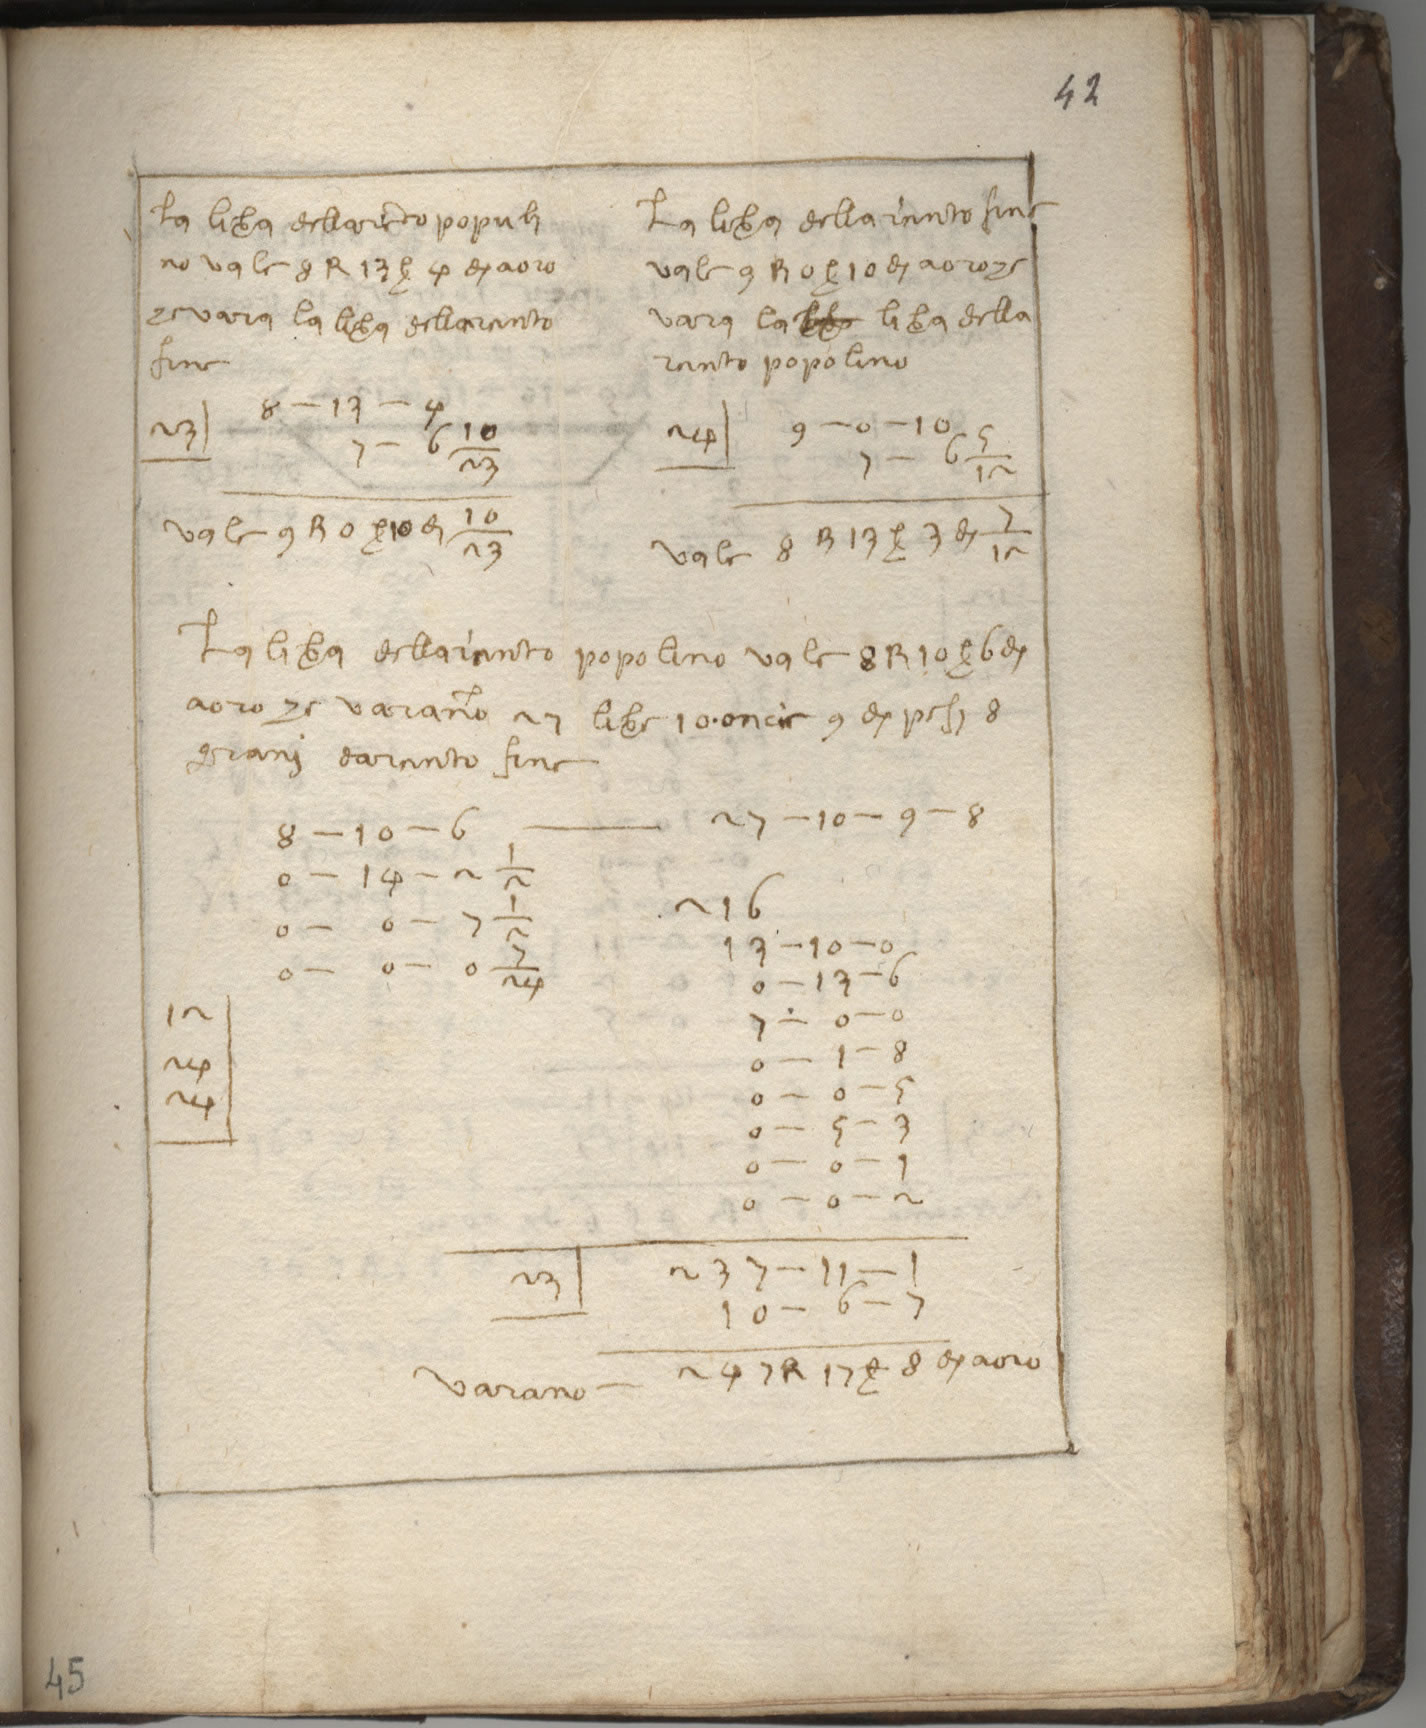 42
La libra dellariento populi
no vale 8 R 13 ß 4 đ aoro
che vara la libra dellariento
fine
23 8 – 13 – 4
7 – 6 10/23
vale 9 R 0 ß 10 đ 10/23
La libra dellariento fine
vale 9 R 0 ß 10 đ aoro che
vara la libra della
riento popolino
24 9 – 0 – 10
7 – 6 5/12
vale 8 R 13 ß 3 đ 7/12
La libra dellariento popolino vale 8 R 10 ß 6 đ
aoro che varano 27 libre 10 oncie 9 đ pesi 8
grani dariento fine
8 – 10 – 6 — 27 – 10 – 9 – 8
0 – 14 – 2 1/2
0 – 0 – 7 1/2
0 – 0 – 0 7/24
12
24
24
216
13 – 10 – 0
0 – 13 – 6
7 – 0 – 0
0 – 1 – 8
0 – 0 – 5
0 – 5 – 3
0 – 0 – 1
0 – 0 – 2
23 237 – 11 – 1
10 – 6 – 7
Varano – 247 R 17 ß 8 đ aoro
45